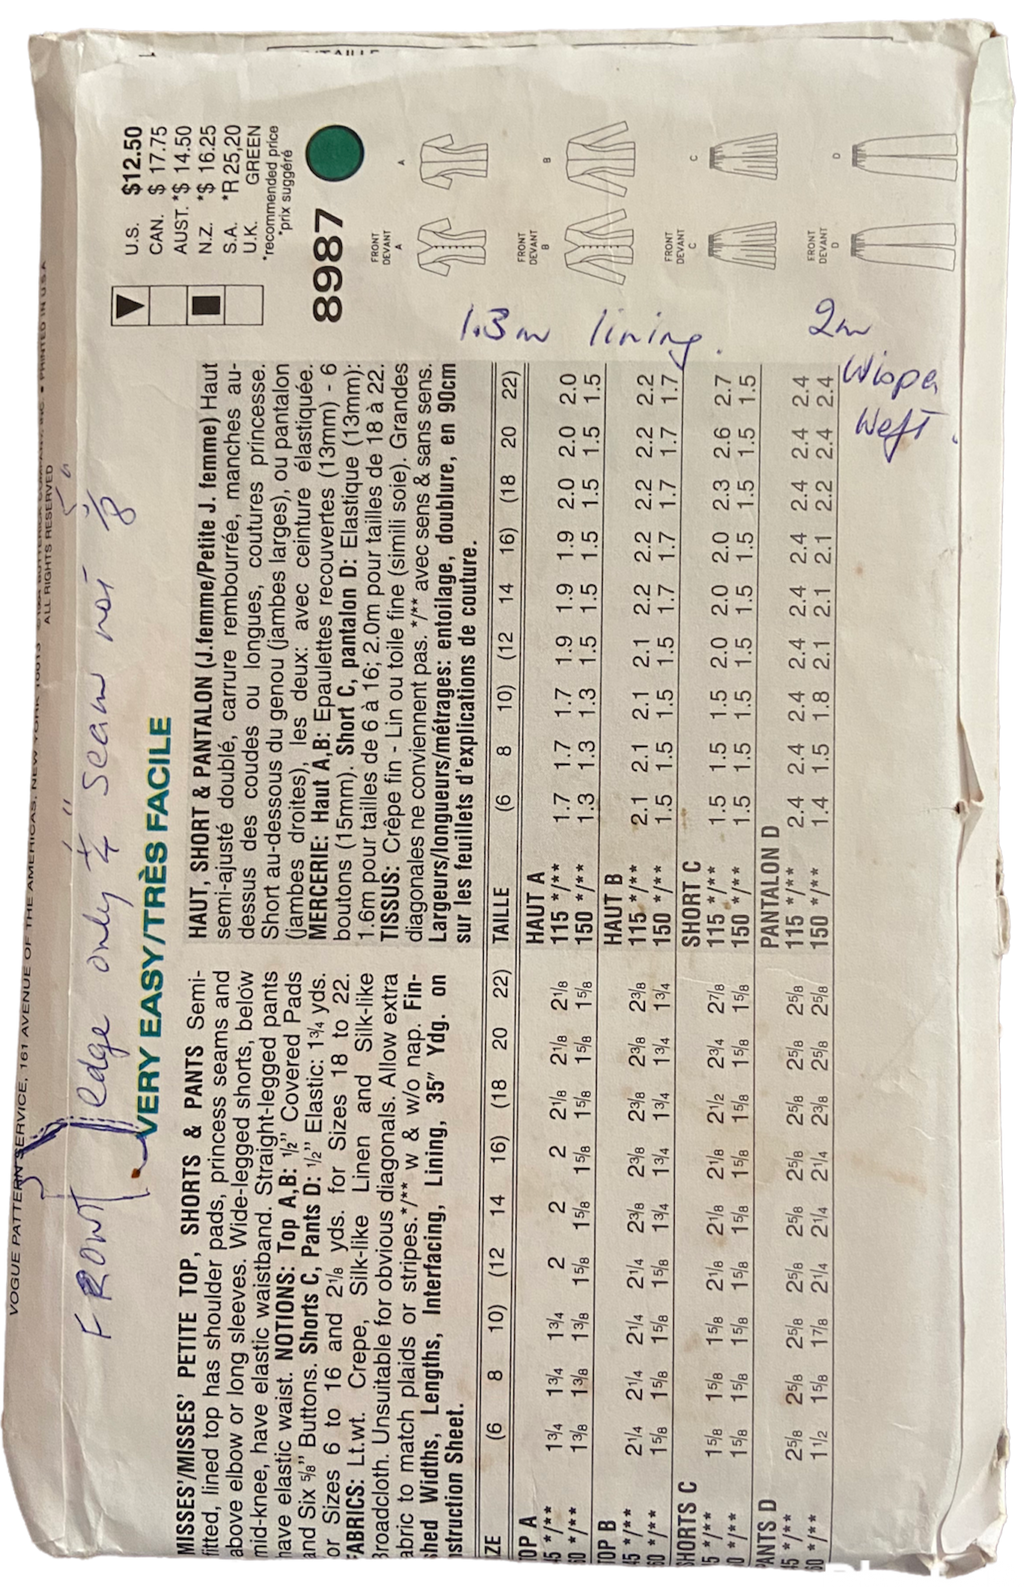 VOGUE PATTERN SERVICE, 161 AVENUE OF THE AMERICAS, NEW YORK 10013 PRINTED IN U.S.A
ALL RIGHTS RESERVED
FRONT edge only ¼" seam not 5/8"
VERY EASY/TRÈS FACILE
MISSES'/MISSES' PETITE TOP, SHORTS & PANTS Semi-
fitted, lined top has shoulder pads, princess seams and
above elbow or long sleeves. Wide-legged shorts, below
mid-knee, have elastic waistband. Straight-legged pants
have elastic waist. NOTIONS: Top A,B: ½" Covered Pads
and Six ⅝" Buttons. Shorts C, Pants D: ½" Elastic: 1¾ yds.
or Sizes 6 to 16 and 2⅛ yds. for Sizes 18 to 22.
FABRICS: Lt.wt. Crepe, Silk-like Linen and Silk-like
Broadcloth. Unsuitable for obvious diagonals. Allow extra
abric to match plaids or stripes. */** w & w/o nap. Fin-
shed Widths, Lengths, Interfacing, Lining, 35" Ydg. on
nstruction Sheet.
ZE (6 8 10) (12 14 16) (18 20 22)
OP A
45 */** 1¾ 1¾ 1¾ 2 2 2 2⅛ 2⅛ 2⅛
60 */** 1⅜ 1⅜ 1⅜ 1⅝ 1⅝ 1⅝ 1⅝ 1⅝ 1⅝
TOP B
45 */** 2¼ 2¼ 2¼ 2¼ 2⅜ 2⅜ 2⅜ 2⅜ 2⅜
60 */** 1⅝ 1⅝ 1⅝ 1⅝ 1¾ 1¾ 1¾ 1¾ 1¾
SHORTS C
5 */** 1⅝ 1⅝ 1⅝ 2⅛ 2⅛ 2⅛ 2½ 2¾ 2⅞
0 */** 1⅝ 1⅝ 1⅝ 1⅝ 1⅝ 1⅝ 1⅝ 1⅝ 1⅝
PANTS D
45 */** 2⅝ 2⅝ 2⅝ 2⅝ 2⅝ 2⅝ 2⅝ 2⅝ 2⅝
60 */** 1½ 1⅝ 1⅞ 2¼ 2¼ 2¼ 2⅜ 2⅝ 2⅝
HAUT, SHORT & PANTALON (J.femme/Petite J. femme) Haut
semi-ajusté doublé, carrure rembourrée, manches au-
dessus des coudes ou longues, coutures princesse.
Short au-dessous du genou (jambes larges), ou pantalon
(jambes droites), les deux: avec ceinture élastiquée.
MERCERIE: Haut A,B: Epaulettes recouvertes (13mm) - 6
boutons (15mm). Short C, pantalon D: Elastique (13mm):
1.6m pour tailles de 6 à 16; 2.0m pour tailles de 18 à 22.
TISSUS: Crêpe fin - Lin ou toile fine (simili soie). Grandes
diagonales ne conviennent pas. */** avec sens & sans sens.
Largeurs/longueurs/métrages: entoilage, doublure, en 90cm
sur les feuillets d'explications de couture.
TAILLE (6 8 10) (12 14 16) (18 20 22)
HAUT A
115 */** 1.7 1.7 1.7 1.9 1.9 1.9 2.0 2.0 2.0
150 */** 1.3 1.3 1.3 1.5 1.5 1.5 1.5 1.5 1.5
HAUT B
115 */** 2.1 2.1 2.1 2.1 2.2 2.2 2.2 2.2 2.2
150 */** 1.5 1.5 1.5 1.5 1.7 1.7 1.7 1.7 1.7
SHORT C
115 */** 1.5 1.5 1.5 2.0 2.0 2.0 2.3 2.6 2.7
150 */** 1.5 1.5 1.5 1.5 1.5 1.5 1.5 1.5 1.5
PANTALON D
115 */** 2.4 2.4 2.4 2.4 2.4 2.4 2.4 2.4 2.4
150 */** 1.4 1.5 1.8 2.1 2.1 2.1 2.2 2.4 2.4
U.S. $12.50
CAN. $ 17.75
AUST. *$ 14.50
N.Z. *$ 16.25
S.A. *R 25,20
U.K. GREEN
*recommended price
*prix suggéré
8987
FRONT
DEVANT
A A
FRONT
DEVANT
B B
FRONT
DEVANT
C C
FRONT
DEVANT
D D
1.3m lining.
2m
Wispa
Weft.